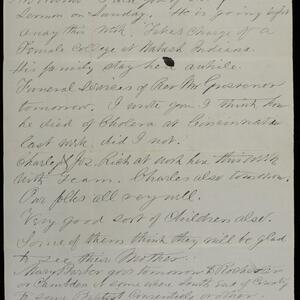 Sermon on Sunday. He is going right
away this week Takes charge of a
Female College at Wabash Indiana.
His family stay here awhile.
Funeral services of Rev Mr Grosvenor
tomorrow. I wrote you I think how
he died of Cholera at Cincinnati
last week, did I not.
Charley & Jos. Rich at work here this week
with Team. Charles also tomorrow.
Our folks all very well.
Very good sort of Children also.
Some of them think they will be glad
to see their Mother.
Mary goes tomorrow to
or Camden or some where South East of County
to some Baptist